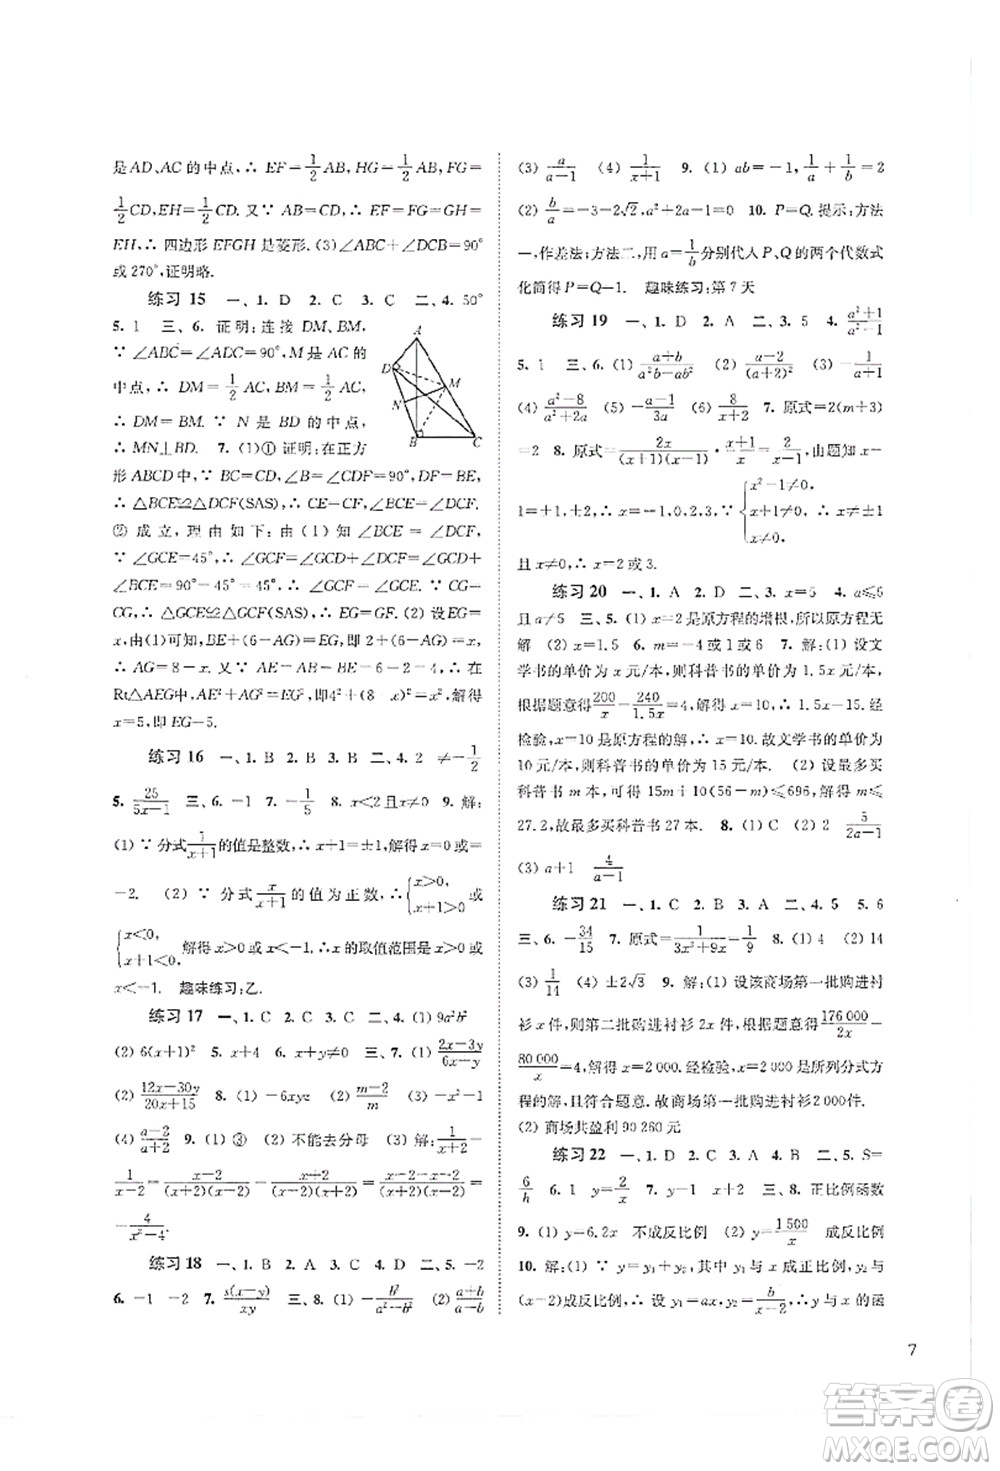 是AD、AC的中点,∴ EF=1/2 AB, HG=1/2 AB, FG=
1/2 CD, EH=1/2 CD. 又∵ AB=CD,∴ EF=FG=GH=
EH,∴ 四边形EFGH是菱形. (3)∠ABC+∠DCB=90°
或270°,证明略.
练习 15 一、1. D 2. C 3. C 二、4. 50°
5. 1 三、6. 证明:连接 DM、BM,
∵ ∠ABC=∠ADC=90°,M 是 AC 的
中点,∴ DM=1/2 AC, BM=1/2 AC,∴
DM=BM. ∵ N 是 BD 的中点,
∴ MN⊥BD. 7. (1)① 证明:在正方
形 ABCD 中,∵ BC=CD,∠B=∠CDF=90°,DF=BE,
∴ △BCE≌△DCF(SAS),∴ CE=CF.
② 成立,理由如下:由(1)知∠BCE=∠DCF,
∵ ∠GCE=45°,∴ ∠GCF=∠GCD+∠DCF=∠GCD+
∠BCE=90°-45°=45°,∴ ∠GCF=∠GCE. ∵ CG=
CG,∴ △GCE≌△GCF(SAS),∴ EG=GF. (2) 设EG=
x,由(1)可知,BE+(6-AG)=EG,即 2+(6-AG)=x,
∴ AG=8-x. 又∵ AE=AB-BE=6-2=4,∴ 在
Rt△AEG中,AE²+AG²=EG²,即4²+(8-x)²=x²,解得
x=5,即 EG=5.
A
D
M
N
B
C
练习 16 一、1. B 2. B 3. B 二、4. 2 ≠-1/2
5. 25/(5x-1) 三、6. -1 7. -1/5 8. x<2且x≠0 9. 解:
(1) ∵ 分式1/(x+1)的值是整数,∴ x+1=±1,解得x=0或x=
-2. (2) ∵ 分式x/(x+1)的值为正数,∴ {x>0, x+1>0 或
{x<0, x+1<0, 解得 x>0 或 x<-1. ∴ x 的取值范围是 x>0 或
x<-1. 趣味练习:乙.
练习 17 一、1. C 2. C 3. C 二、4. (1) 9a²b²
(2) 6(x+1)² 5. x+4 6. x+y≠0 三、7. (1) (2x-3y)/(6x-y)
(2) (12x-30y)/(20x+15) 8. (1) -6xyz (2) (m-2)/m (3) -x²-x
(4) (a-2)/(a+2) 9. (1) ③ (2) 不能去分母 (3) 解:1/(x+2)-
1/(x-2)=(x-2)/((x+2)(x-2))-(x+2)/((x-2)(x+2))=(x-2-x-2)/((x+2)(x-2))=
-4/(x²-4).
练习 18 一、1. B 2. A 3. C 4. D 二、5. -2
6. -1 -2 7. s(x-y)/xy 三、8. (1) -b²/(a²-b²) (2) (a+b)/(a-b)
(3) a/(a-1) (4) 1/(x+1) 9. (1) ab=-1, 1/a+1/b=2
(2) b/a=-3-2√2, a²+2a-1=0 10. P=Q. 提示:方法
一,作差法;方法二,由 a=1/b分别代入 P、Q 的两个代数式
化简得 P=Q=1. 趣味练习:第 7 天
练习 19 一、1. D 2. A 二、3. 5 4. (a²+1)/(a²-1)
5. 1 三、6. (1) (a+b)/(a²b-ab²) (2) (a-2)/(a+2)² (3) -1/(a+1)
(4) (a²-8)/(a²+2a) (5) -(a-1)/3a (6) 8/(x+2) 7. 原式=2(m+3)
=2 8. 原式=2x/((x+1)(x-1))·(x+1)/x=2/(x-1),由题知 x-
1=±1,±2,∴ x=0,2,3,∵ {x²-1≠0, x≠0, ∴ x≠±1
且 x≠0,∴ x=2 或 3.
练习 20 一、1. A 2. D 二、3. x=5 4. a≤5
三、5. (1) x=2 是原方程的增根,所以原方程无
解 (2) x=1.5 6. m=-4或1或6 7. (1) 设文
学书的单价为 x 元/本,则科普书的单价为1.5x 元/本,
根据题意得200/x-240/1.5x=4,解得 x=10,∴ 1.5x=15. 经
检验,x=10 是原方程的解,∴ x=10. 故文学书的单价为
10 元/本,则科普书的单价为15元/本. (2) 设最多买
科普书 m 本,可得 15m+10(56-m)≤696,解得 m≤
27.2,故最多买科普书 27 本. 8. (1) C (2) 2 5/(2a-1)
(3) a+1 4/(a-1)
练习 21 一、1. C 2. B 3. A 二、4. 5 5. 6
三、6. -34/15 7. 原式=1/(3x²+9x)=1/9 8. (1) 4 (2) 14
(3) 1/14 (4) ±2√3 9. 解:(1) 设该商场第一批购进衬
衫 x 件,则第二批购进衬衫 2x 件,根据题意得176 000/2x-
80 000/x=4,解得 x=2 000. 经检验,x=2 000 是所列分式方
程的解,且符合题意. 故商场第一批购进衬衫2 000件.
(2) 商场共盈利 90 260 元
练习 22 一、1. C 2. D 3. A 4. B 二、5. S=
6/h 6. 1 y=2/x 7. x≠0 三、8. 正比例函数
9. (1) y=6.2x 不成反比例 (2) y=1 500/x 成反比例
10. 解:(1) ∵ y=y₁+y₂,其中 y₁ 与 x 成正比例,y₂ 与
(x-2)成反比例,∴ 设 y₁=ax, y₂=b/(x-2),∴ y 与 x 的函
7
答案卷
MXQE.COM